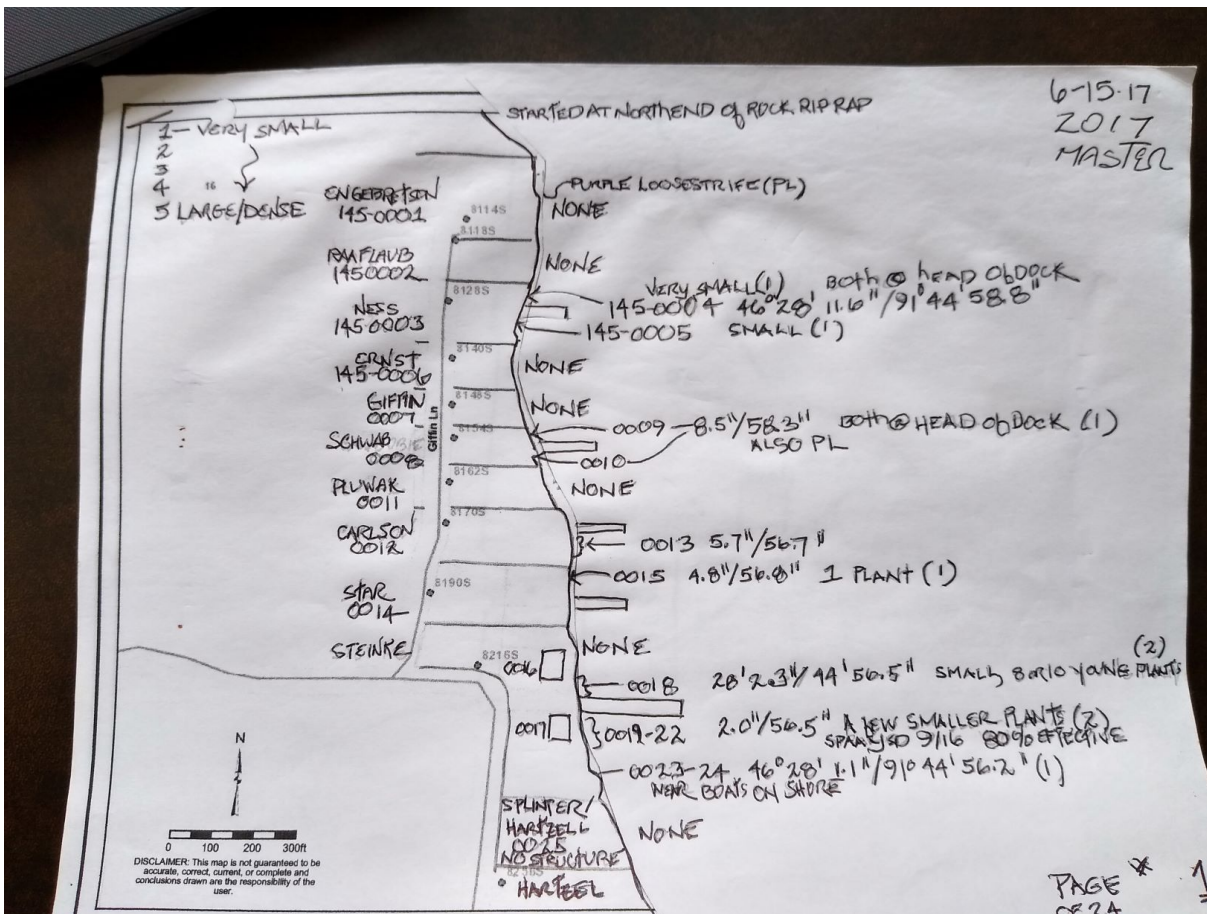 6-15-17
2017
MASTER
STARTED AT NORTH END of ROCK RIP RAP
1 - VERY SMALL
2
3
4
5 LARGE/DENSE
16
PURPLE LOOSESTRIFE (PL)
ENGEBRETSON
145-0001
8114S
NONE
8118S
RAAFLAUB
1450002
NONE
8128S
VERY SMALL (1) BOTH @ HEAD Ob DOCK
145-0004 46°28' 11.6"/91°44 58.8"
NESS
145-0003
145-0005 SMALL (1)
ERNST
145-0006
8140S
NONE
GIFFIN
0007
8148S
NONE
Giffin Ln
SCHWAB
0008
8154S
0009 8.5"/58.3" BOTH @ HEAD Ob DOCK (1)
ALSO PL
0010
PLUWAK
0011
8162S
NONE
CARLSON
0012
8170S
0013 5.7"/56.7"
0015 4.8"/56.8" 1 PLANT (1)
STAR
0014
8190S
STEINKE
8216S
0016
NONE
(2)
0018 28' 2.3"/44' 56.5" SMALL 8 OR 10 YOUNG PLANTS
0017
0019-22 2.0"/56.5" A FEW SMALLER PLANTS (2)
SPRAYED 9/16 80% EFFECTIVE
0023-24 46°28' 1.1"/91° 44' 56.2" (1)
NEAR BOATS ON SHORE
SPLINTER/
HARTZELL
0025
NO STRUCTURE
NONE
HARTZEL
N
0 100 200 300ft
DISCLAIMER: This map is not guaranteed to be
accurate, correct, current, or complete and
conclusions drawn are the responsibility of the
user.
PAGE * 1
OF 24